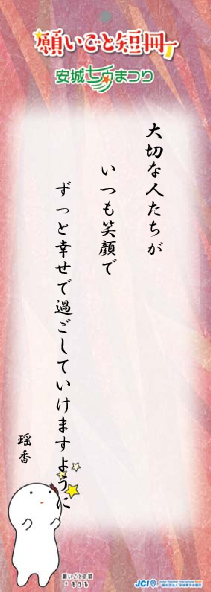 願いごと短冊
安城七夕まつり
大切な人たちが
いつも笑顔で
ずっと幸せで過ごしていけますように
瑶香
願いごと短冊
JCI